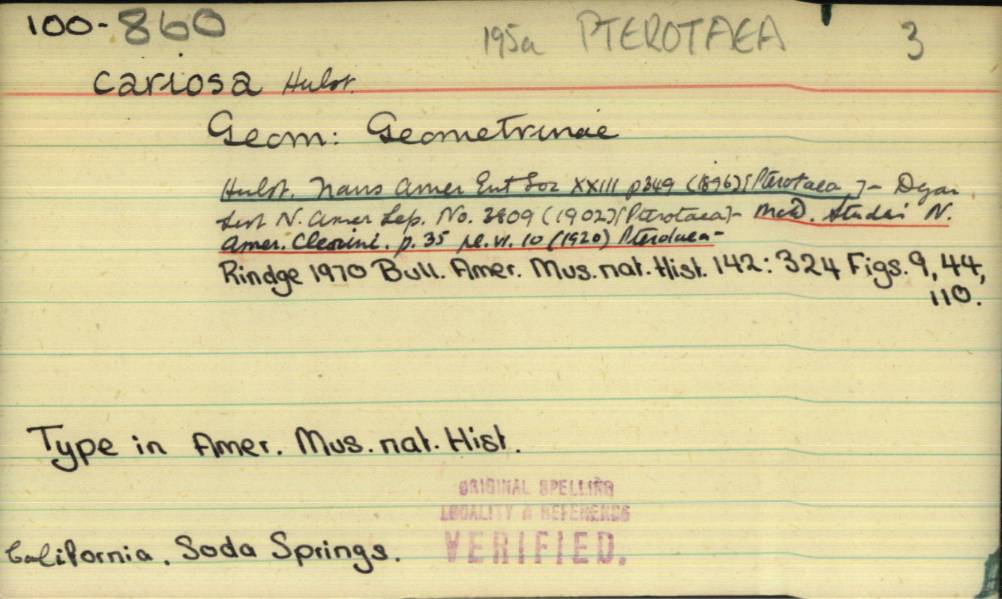 100-860 195a PTEROTAEA 3
cariosa Hulst.
Geom: Geometrinae
Hulst. Trans Amer Ent Soc XXIII p349 (1896) [Pterotaea] - Dyar
List N. Amer Lep. No. 3909 (1902) [Pterotaea] - McD. Studies N.
Amer. Cleorini. p. 35 pl. VI. 10 (1920) Pterotaea -
Rindge 1970 Bull. Amer. Mus. nat. Hist. 142: 324 Figs. 9, 44,
110.
Type in Amer. Mus. nat. Hist.
ORIGINAL SPELLING
LOCALITY & REFERENCE
VERIFIED.
California. Soda Springs.